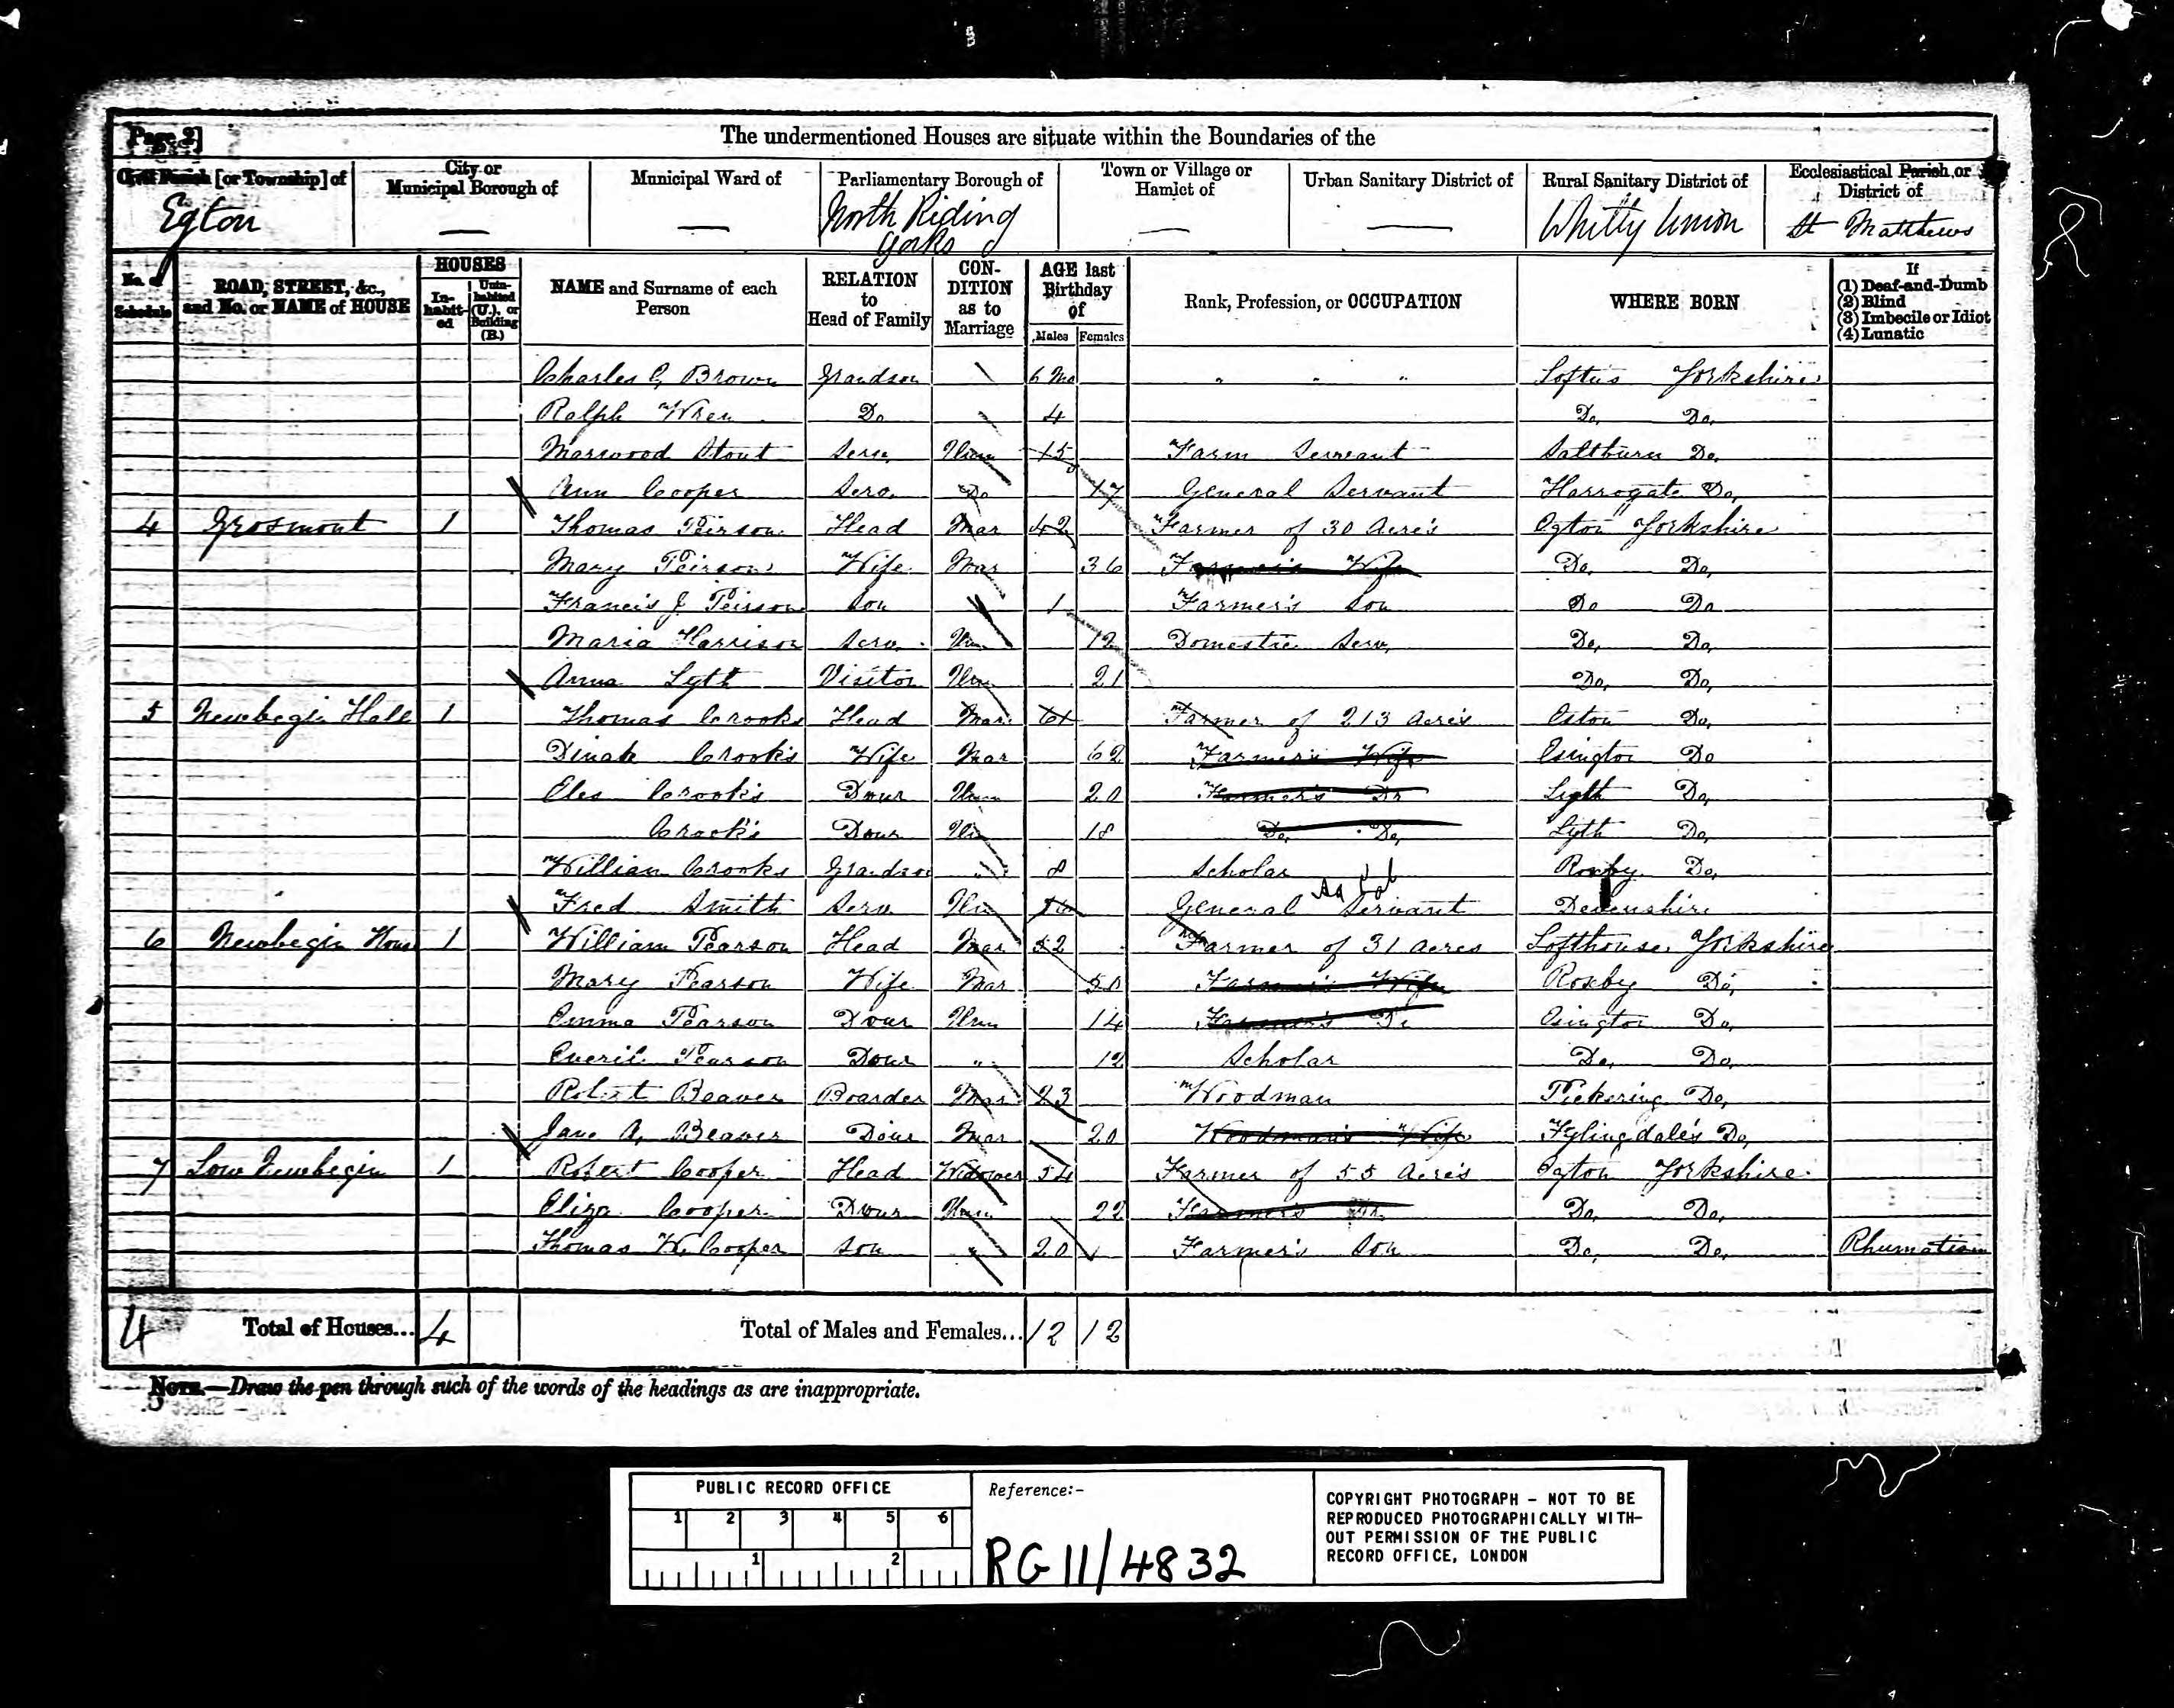 Page 2]
The undermentioned Houses are situate within the Boundaries of the
Civil Parish [or Township] of
City or Municipal Borough of
Municipal Ward of
Parliamentary Borough of
Town or Village or Hamlet of
Urban Sanitary District of
Rural Sanitary District of
Ecclesiastical Parish or District of
Egton
—
—
North Riding Yorks
—
—
Whitby Union
St Matthews
No. of Schedule
ROAD, STREET, &c., and No. or NAME of HOUSE
HOUSES
In-habit-ed
Unin-habited (U.), or Building (B.)
NAME and Surname of each Person
RELATION to Head of Family
CON-DITION as to Marriage
AGE last Birthday of
Males
Females
Rank, Profession, or OCCUPATION
WHERE BORN
If
(1) Deaf-and-Dumb
(2) Blind
(3) Imbecile or Idiot
(4) Lunatic
Charles G Brown Grandson 6 Mo " " " Loftus Yorkshire
Ralph Wren Do 4 Do. Do.
Marwood Stout Serv. Unm 15 Farm Servant Saltburn Do.
Ann Cooper Serv. Do 17 General Servant Harrogate Do,
4 Grosmont 1 Thomas Peirson Head Mar 42 Farmer of 30 Acre's Egton Yorkshire
Mary Peirson Wife Mar 36 Farmer's Wife Do. Do,
Francis J Peirson Son 1 Farmer's Son Do Do
Maria Harrison Serv. Unm 12 Domestic Serv, Do, Do,
Anna Lyth Visitor Unm 21 Do, Do,
5 Newbegin Hall 1 Thomas Crooks Head Mar. 61 Farmer of 213 Acre's Eston Do,
Dinah Crook's Wife Mar 62 Farmer's Wife Esington Do
Crook's Daur Unm 20 Farmer's Dr Lyth Do,
Crook's Daur Un 18 Do. Do, Lyth Do,
William Crooks Grandson " 8 Scholar Roxby Do,
Fred Smith Serv. Un General Servant Ag Lab Devenshire
6 Newbegin House 1 William Pearson Head Mar 52 Farmer of 31 Acres Lofthouse Yorkshire
Mary Pearson Wife Mar 50 Farmer's Wife Roxby Do,
Emma Pearson Daur Unm 14 Farmer's Dr Esington Do,
Pearson Daur " 12 Scholar Do, Do,
Robert Beaver Boarder Mar 23 Woodman Pickering Do,
Jane A, Beaver Daur Mar 20 Woodman's Wife Fylingdale's Do,
7 Low Newbegin 1 Robert Cooper Head Widower 54 Farmer of 55 Acre's Egton Yorkshire
Eliza Cooper Daur Unm 22 Farmer's Dr. Do, Do,
Thomas W. Cooper Son " 20 Farmer's Son Do, Do, Rhumatism
4 Total of Houses... 4 Total of Males and Females... 12 12
NOTE.—Draw the pen through such of the words of the headings as are inappropriate.
PUBLIC RECORD OFFICE
1 2 3 4 5 6
1 2
Reference:-
RG 11/4832
COPYRIGHT PHOTOGRAPH - NOT TO BE
REPRODUCED PHOTOGRAPHICALLY WITH-
OUT PERMISSION OF THE PUBLIC
RECORD OFFICE, LONDON